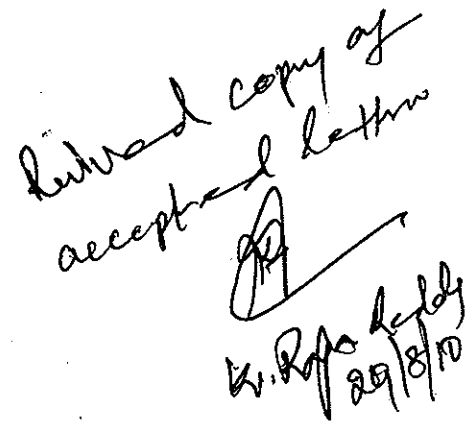 Received copy of
accepted letter
K. Raja Reddy
20/8/10